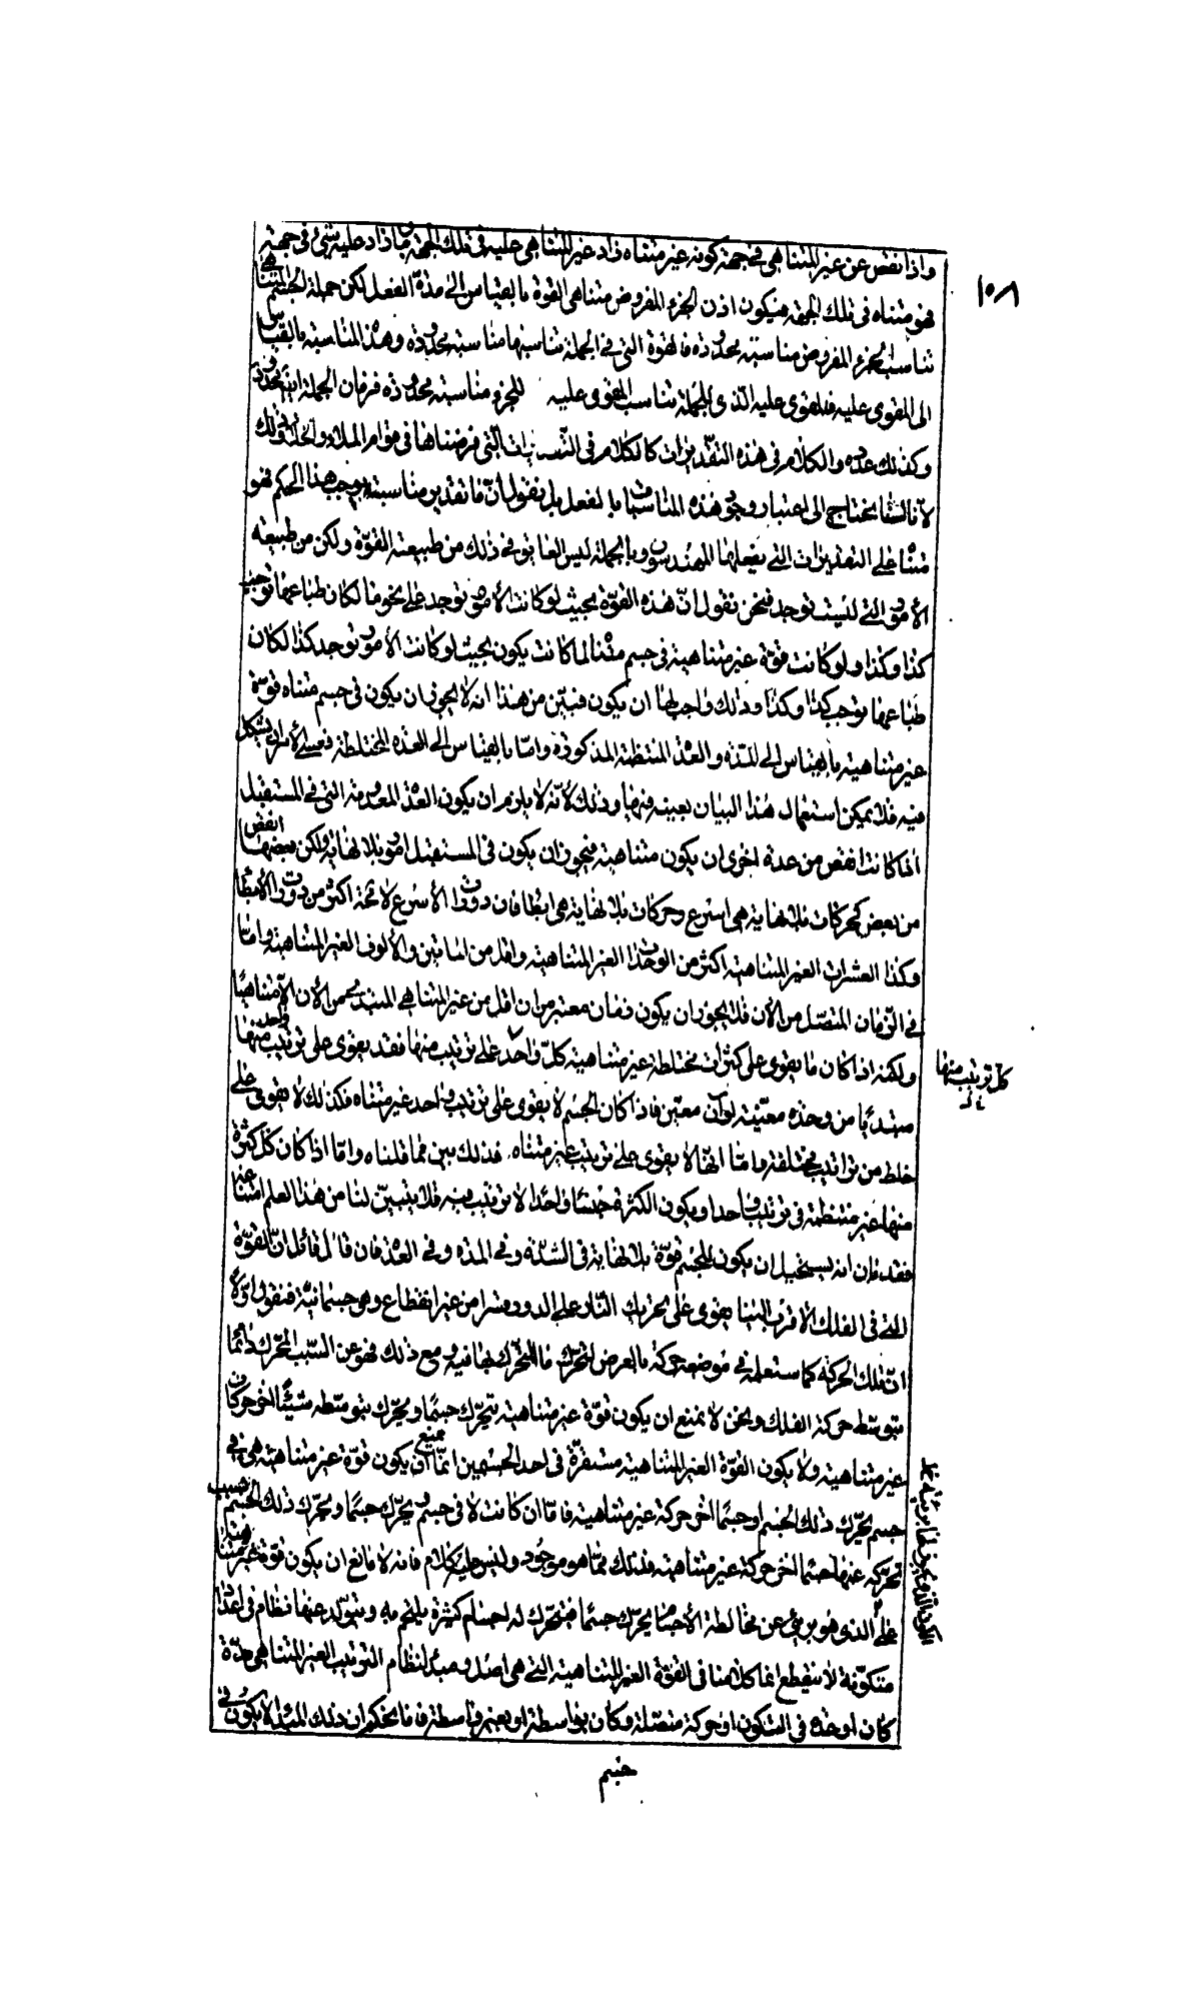 ١٥٨
واذا نقص عن غير المتناهي في جهة كونه غير متناه زاد غير المتناهي عليه في تلك الجهة وما زاد عليه شئ في جهة
فهو متناه في تلك الجهة فيكون اذن الجزء المفروض متناهي القوة بالقياس الى مدة الفعل لكن جملة الجسم المتناهي
تناسب الجزء المفروض مناسبة محدودة فالقوة التي في الجملة تناسبها مناسبة محدودة وهذا المناسبة بالقياس
الى المقوى عليه فالمقوى عليه الذي للجملة تناسب المقوى عليه للجزء مناسبة محدودة فزمان الجملة ايضا محدود
وكذلك عدده والكلام في هذه التقديرات كالكلام في التي فرضناها في امر الملاء والخلاء وذلك
لأنا لسنا نحتاج الى اعتبار وجود هذه المناسبات بالفعل بل نقول ان ما تقدير مناسبته يوجب هذا الحكم فهو
متناه على التقديرات التي يفعلها المهندسون وبالجملة ليس العائق في ذلك من طبيعة القوة ولكن من طبيعة
الأمور التي ليست توجد فنحن نقول ان هذه القوة بحيث لو كانت الأمور توجد على نحو ما لكان طباعها توجب
كذا وكذا ولو كانت قوة غير متناهية في جسم متناه لما كانت يكون بحيث لو كانت الأمور توجد كذا لكان
طباعها توجب كذا وكذا وذلك واجب لها ان يكون فبيّن من هذا انه لا يجوز ان يكون في جسم متناه قوة
غير متناهية بالقياس الى المدة والعدة المنتظمة المذكورة واما بالقياس الى العدة المختلطة فعسى الأمران يشكل
فيه فلا يمكن استعمال هذا البيان بعينه فيها وذلك لأنه لا يلزم ان يكون العدة المعدومة التي في المستقبل
اذا كانت انقص من عدة اخرى ان يكون متناهية فيجوز ان يكون في المستقبل امور بلا نهاية ولكن بعضها انقص
من بعض كحركات بلا نهاية هي اسرع وحركات بلا نهاية هي ابطا فان دورات الأسرع لا محة اكثر من دورات الأبطا
وكذا العشرات الغير المتناهية اكثر من الوحدات الغير المتناهية واقل من المائتين والألوف الغير المتناهية واما
في الزمان المتصل من الآن فلا يجوز ان يكون زمان معتبر من ان اقل من غير المتناهي المبتدئ من الآن الا متناهيا
ولكنه اذا كان ما يقوى على كثرات مختلطة غير متناهية كل واحد على ترتيب منها فقد يقوى على ترتيب واحد منها
مبتدئا من وحدة معينة او ان معين فاذا كان الجسم لا يقوى على ترتيب واحد غير متناه فكذلك لا يقوى على
خلط من تراتيب مختلفة واما انها لا يقوى على ترتيب غير متناه فذلك بين مما قلناه واما اذا كان كل كثرة
منها غير منتظمة في ترتيب واحد ويكون الكثرة جنسا واحدا لا ترتيب فيه فلا يتبين لنا من هذا العلم امتناعه
فقد بان انه يستحيل ان يكون للجسم قوة بلا نهاية في الشدة وفي المدة وفي العدة فان قال قائل ان القوة
التي في الفلك الاقرب الينا يقوى على تحريك النار على الدور من غير انقطاع وهو جسمانية فنقول اولا
ان تلك الحركة كما ستعلمه في موضعه حركة بالعرض لمتحرك فالمتحرك بها فيه ومع ذلك فهو عن السبب المحرك دائما
بتوسط حركة الفلك ونحن لا نمنع ان يكون قوة غير متناهية تحرك جسما ويحرك بتوسطه شيئا اخر حركات
غير متناهية ولا يكون القوة الغير المتناهية مستقرة في احد الجسمين انما نمنع ان يكون قوة غير متناهية هي في
جسم يحرك ذلك الجسم او جسما اخر حركة غير متناهية فاما ان كانت لا في جسم ويحرك جسما ويحرك ذلك الجسم بسبب
تحركه عنها جسما اخر حركة غير متناهية فذلك مما هو موجود وليس عليه كلام فانه لا مانع ان يكون قوة غير متناهية
على الذي هو برئ عن مخالطة الأجسام يحرك جسما فيتحرك له اجسام كثيرة يلتحم به ويتولد عنها نظام في اعداد
متكونة لا ينقطع انما كلامنا في القوة الغير المتناهية التي هي اصل ومبدأ لنظام الترتيب الغير المتناهي مدة
كان او عدة في التكون او حركة متصلة وكان بواسطة او بغير واسطة فانا نحكم ان ذلك المبدأ لا يكون في
جسم
كل ترتيب منها